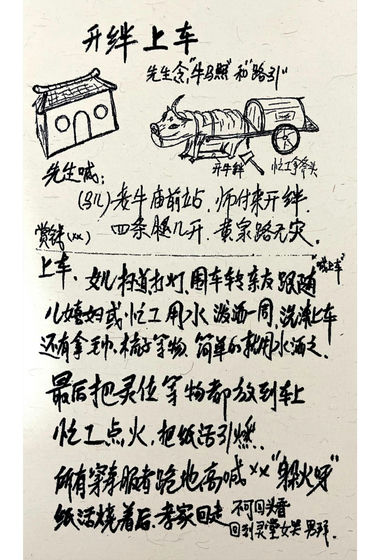 开绊上车
先生念"牛马照"和"路引"
开牛绊
忙工拿斧头
先生喊:
(马儿)老牛庙前站,师付来开绊.
赏钱(xx) 四条腿儿开,黄泉路无灾.
上车、女儿扫道打灯,围车转亲友跟随"喊上车"
儿媳妇或忙工用水泼洒一周,洗涑上车
还有拿毛巾、梳子等物,简单的就用水洒之.
最后把灵位等物都放到车上
忙工点火,把纸活引燃.
所有穿孝服者跪地高喊xx"躲火呀"
纸活烧着后,孝家回走 不可回头看
回到灵堂女哭男拜.